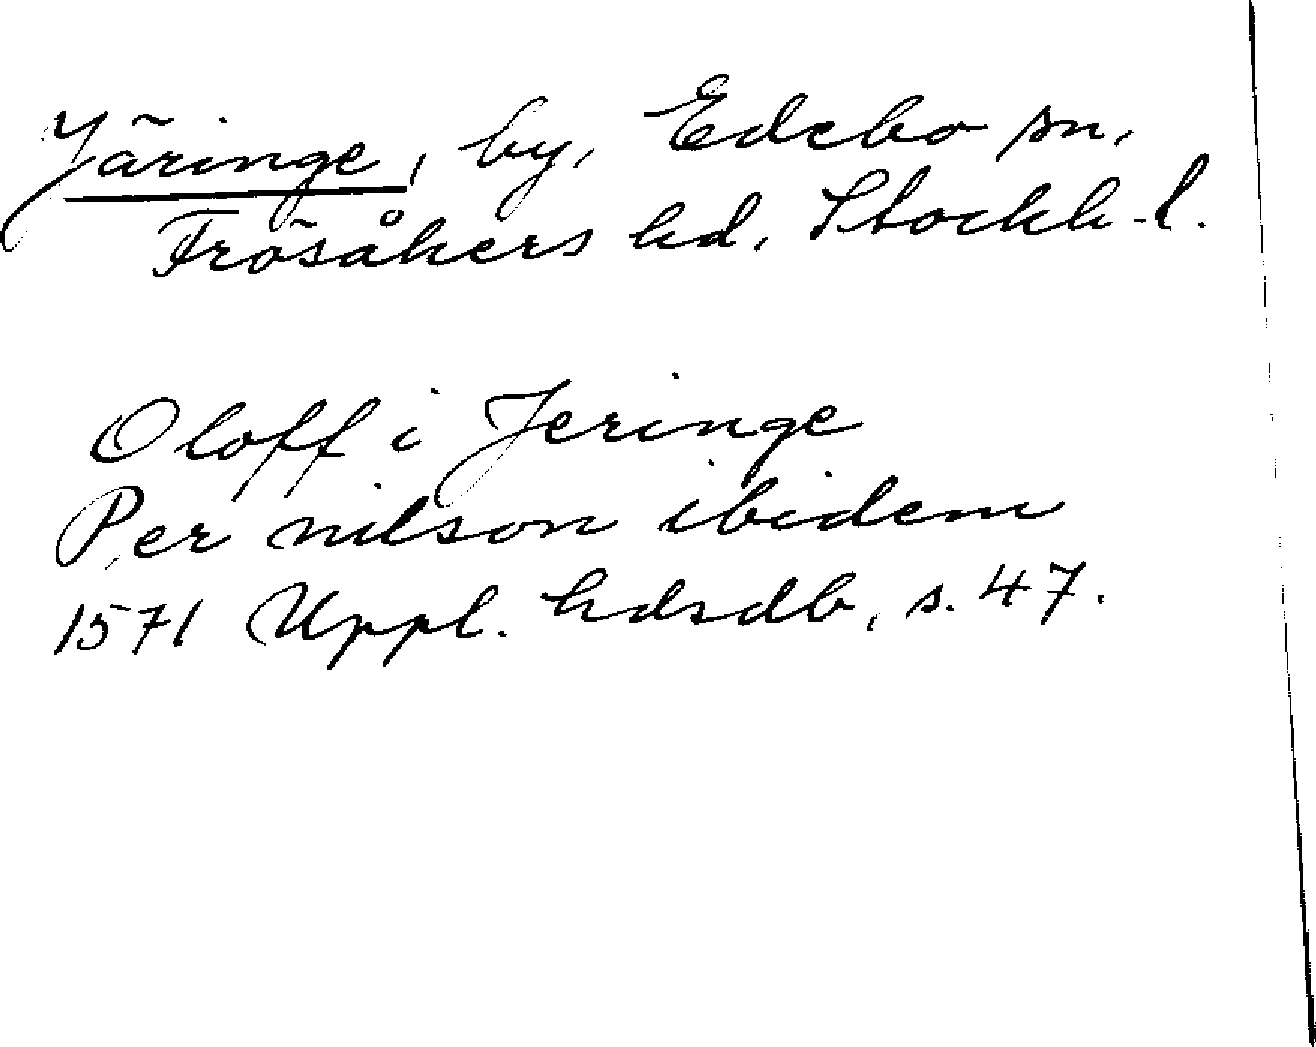 Järinge, by, Edebo sn,
Frösåkers hd, Stockh-l.
Oloff i Jeringe
Per nilson ibidem
1571 Uppl. hdsdb, s. 47.